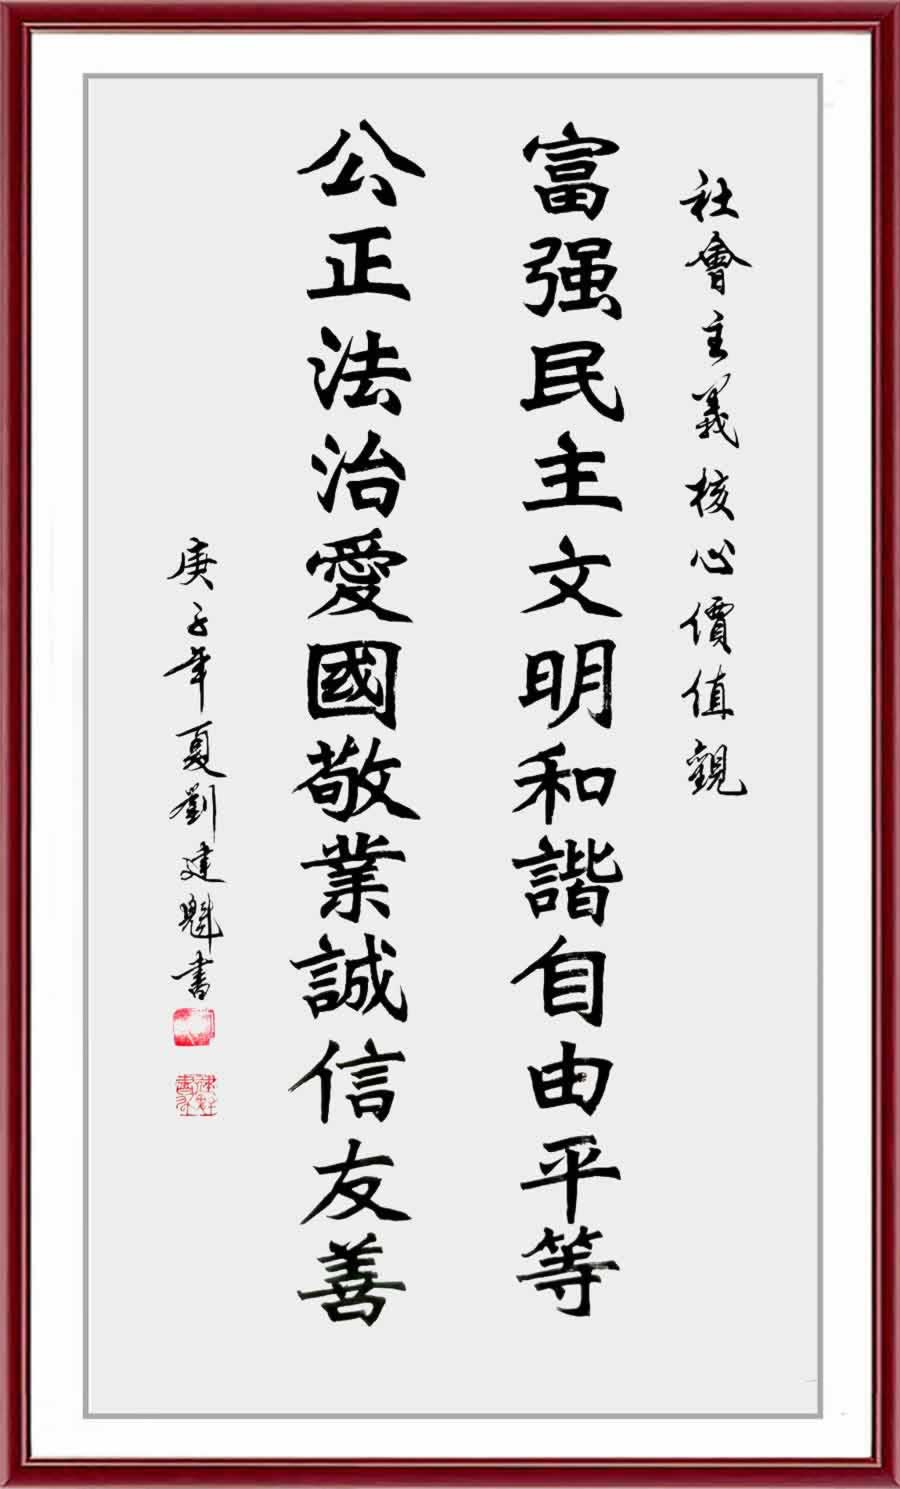 社會主義核心價值觀
富强民主文明和諧自由平等
公正法治愛國敬業誠信友善
庚子年夏劉建魁書